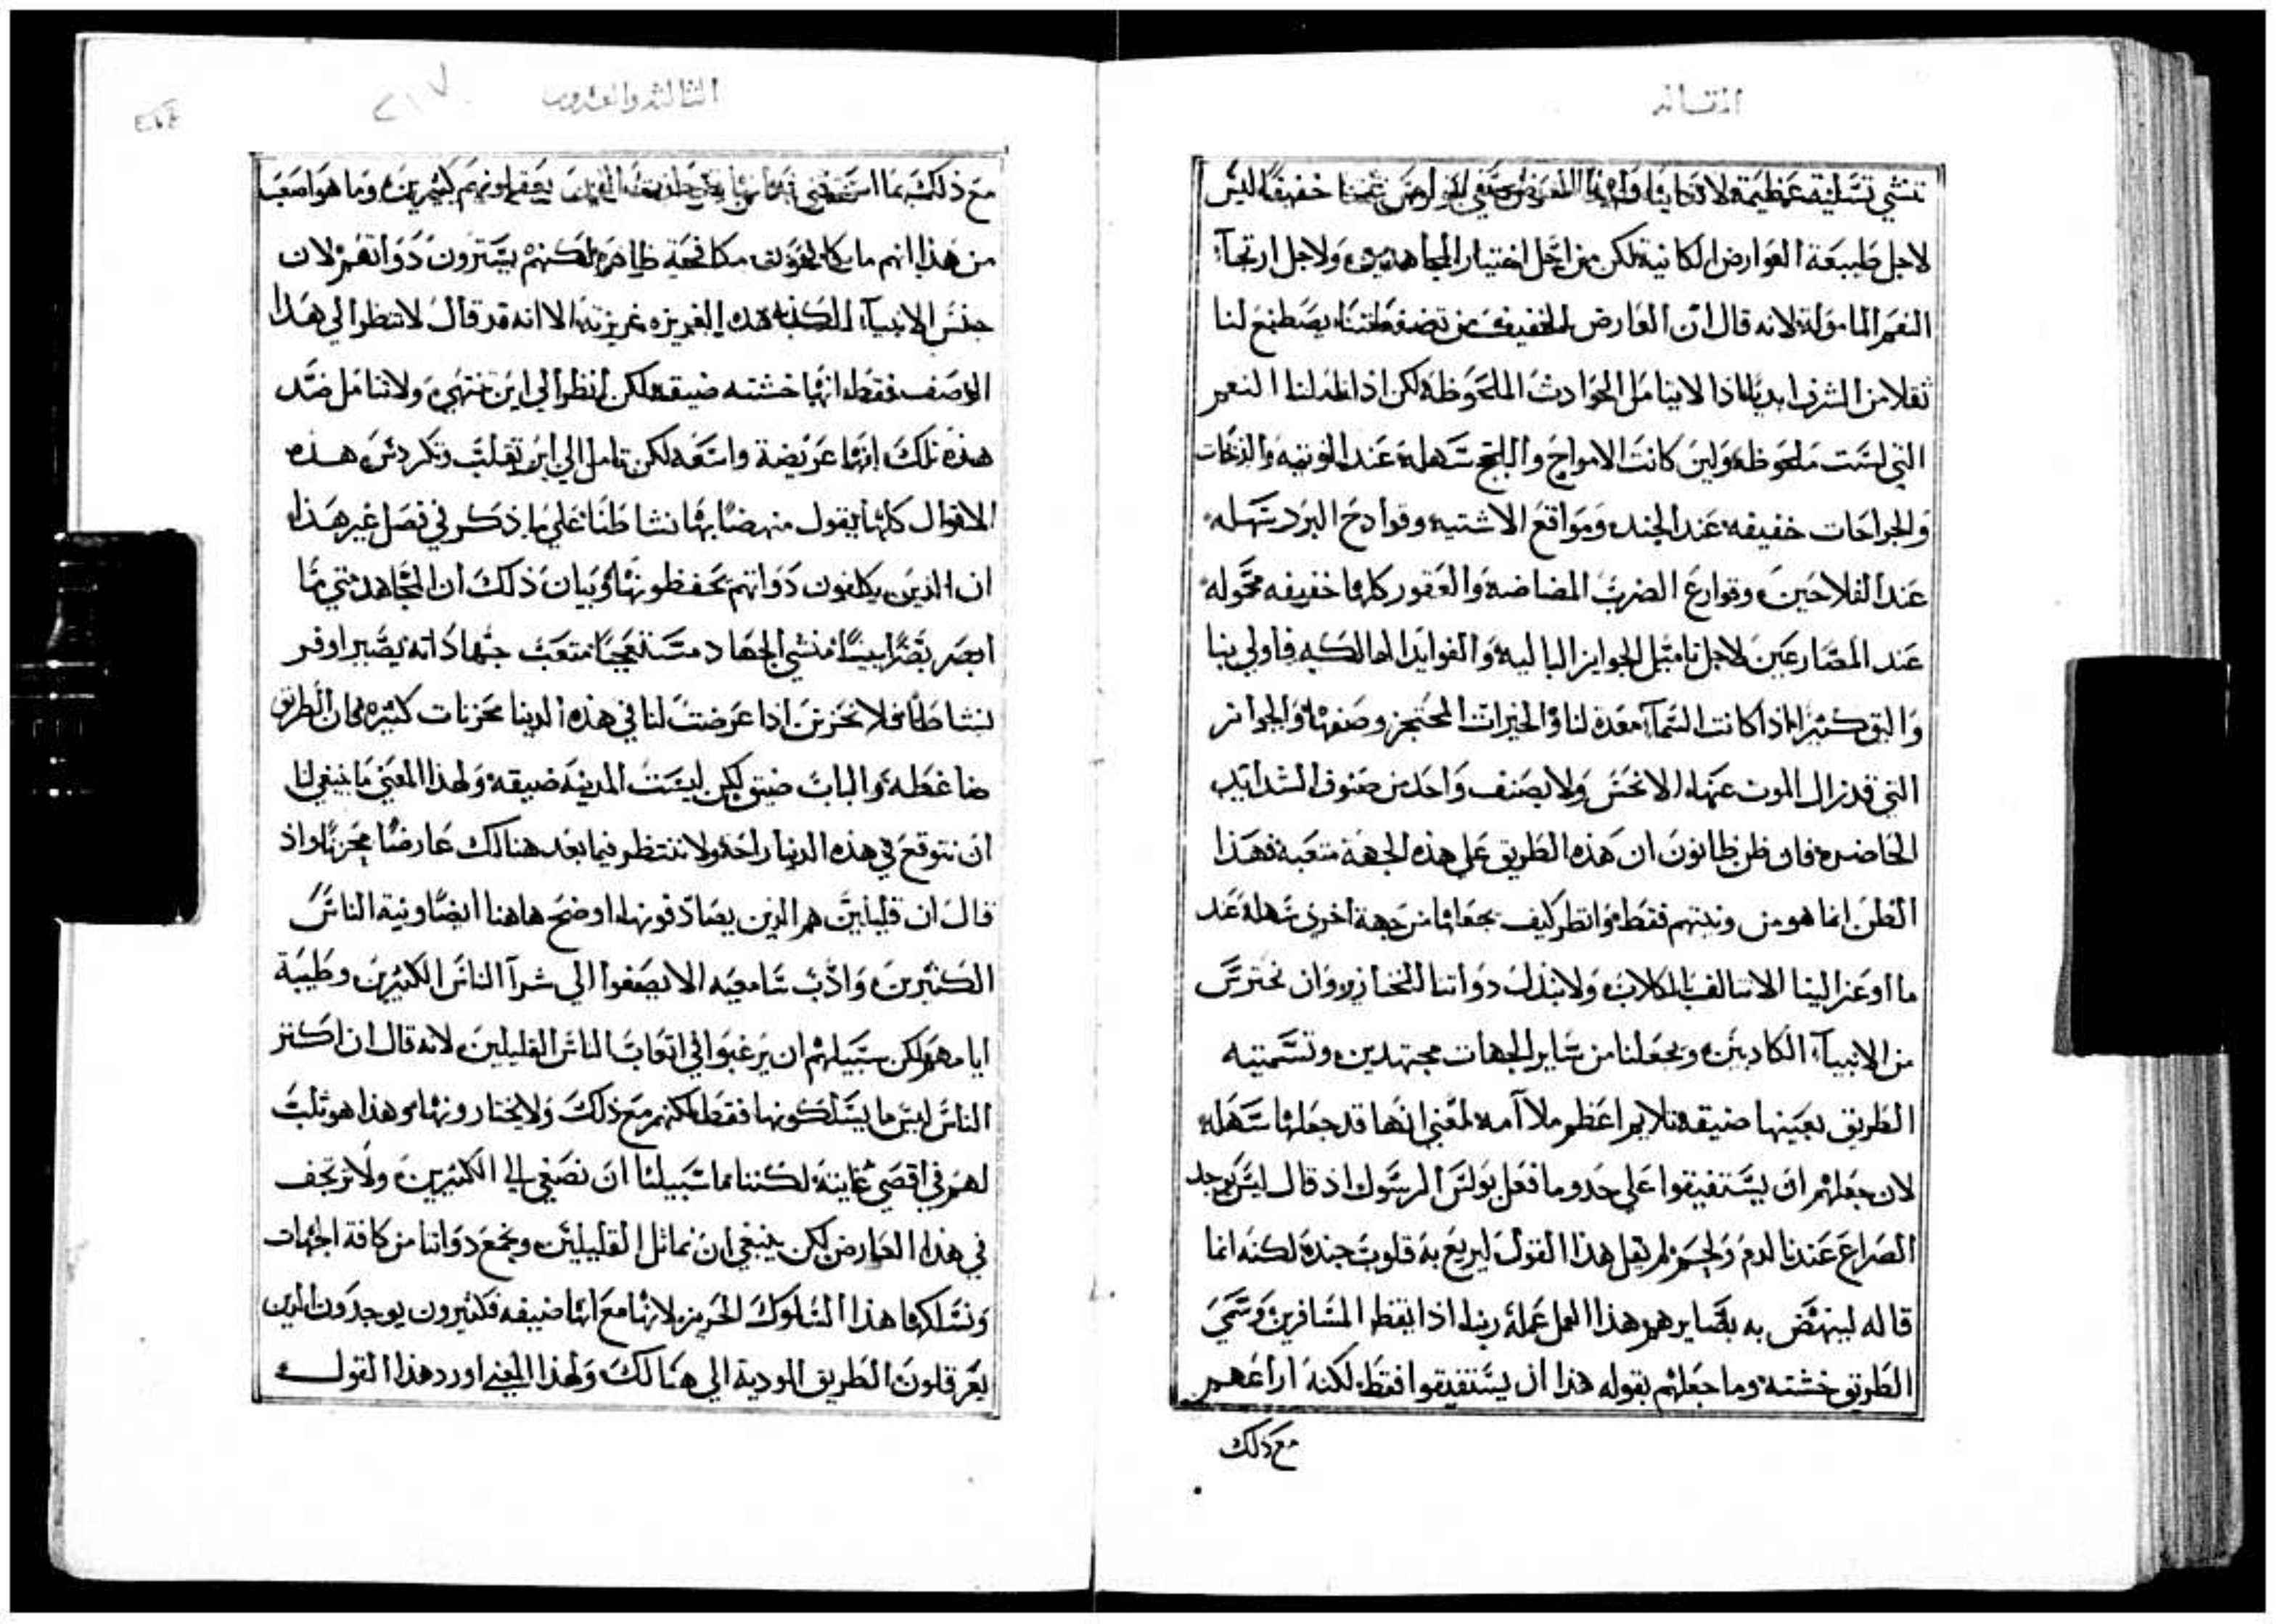 المقاله
تنشي تسلية عظيمة ولا خفيفًا ليس
لاجل طبيعة العوارض الكانية لكن من اجل اختيار المجاهدين ولاجل ارتجآء
النعم المامولة لانه قال ان العارض الخفيف من يصطنع لنا
ثقلا من الشرف ابديًا اذا لا يتامل الحوادث الملحوظة لكن اذا املنا النعم
التي ليست ملحوظة ولين كانت الامواج واللجج سهلة عند النوتيه والذبحات
والجراحات خفيفه عند الجند ومواقع الاشتيه وقوادح البرد سهله
عند الفلاحين وقوارع الضرب المضاضة والعقور كلها خفيفه محموله
عند المصارعين لاجل تاميل الجوايز الباليه والفوايد الهالكه فاولي بنا
واليق كثيرًا اذا كانت السمآء معدة لنا والخيرات المحتجز وصفها والجوائز
التي قد زال الموت عنها الا نحس ولا بصنف واحد من صنوف الشدايد
الحاضره فان ظن ظانون ان هذه الطريق علي هذه الجهة متعبة فهذا
الظن انما هو من ونيتهم فقط وانظر كيف يجعلها من جهة اخري سهلة عند
ما اوعز الينا الا نسالف الكلاب ولا نبذل دواتنا للخنازير وان نحترس
من الانبيآء الكادبين ويجعلنا من ساير الجهات مجتهدين وتسميته
الطريق بعينها ضيقة تلايم اعظم ملاآمه لمعني انها قد جعلها سهله
لان جعلهم ان يستفيقوا علي حدو ما فعل بولس الرسول اذ قال ليس يوجد
الصراع عندنا لدم ولحم ولم يقل هذا القول ليريع به قلوب جندة لكنه انما
قاله لينهض به بصايرهم هذا العمل عمله ربنا اذ ايقظ المسافرين وسمي
الطريق خشنه وما جعلهم بقوله هذا ان يستفيقوا فقط لكنه اراعهم
مع ذلك
الثالثه والعشرون
٢١٧
مع ذلك بما يعقلونهم كثيرين وما هو اصعب
من هذا انهم ما يكافحون مكافحة ظاهرة لكنهم يسترون دواتهم لان
جنس الانبيآء الكذبه هذه الغريزه غريزته الا انه قد قال لا تنظر الي هذا
الوصف فقط انها خشنه ضيقه لكن انظر الي اين تنتهي ولا تتامل ضد
هذه تلك انها عريضة واسعه لكن تامل الي اين تقلب وتكردس هذه
الاقوال كلها يقول منهضًا بها نشاطنا علي ما ذكر في فصل غير هذا
ان الذين يكلفون دواتهم يحفظونها وبيان ذلك ان المجاهد متي ما
ابصر بصرًا بينًا منشي الجهاد متعب جهاداته يصير اوفر
نشاطًا فلا نحزنن اذا عرضت لنا في هذه الدينا محزنات كثيره فان الطريق
ضاغطة والباب ضيق لكن ليست المدينه ضيقه ولهذا المعني ما ينبغي لنا
ان نتوقع في هذه الدنيا راحة ولا ننتظر فيما بعد هنالك عارضًا محزنًا واذ
قال ان قليلين هم الذين يصادفونها اوضح هاهنا ايضًا ونية الناس
الكثيرين وادب سامعيه الا يصغوا الي شرآ الناس الكثيرين وطيبة
ايامهم ولكن سبيلهم ان يرغبوا في اتعاب الناس القليلين لانه قال ان اكثر
الناس ليس ما يسلكونها فقط لكنهم مع ذلك ولا يختارونها وهذا هو ثلب
لهم في اقصي غاينة لكننا ما سبيلنا ان نصغي الي الكثيرين ولا نرتجف
في هذا العارض لكن ينبغي ان نماثل القليلين ونجمع دواتنا من كافة الجهات
ونسلكها هذا السلوك الحريز لانها مع انها ضيقه فكثيرون يوجدون الذين
يعرقلون الطريق المودية الي هنالك ولهذا المعني اورد هذا القول